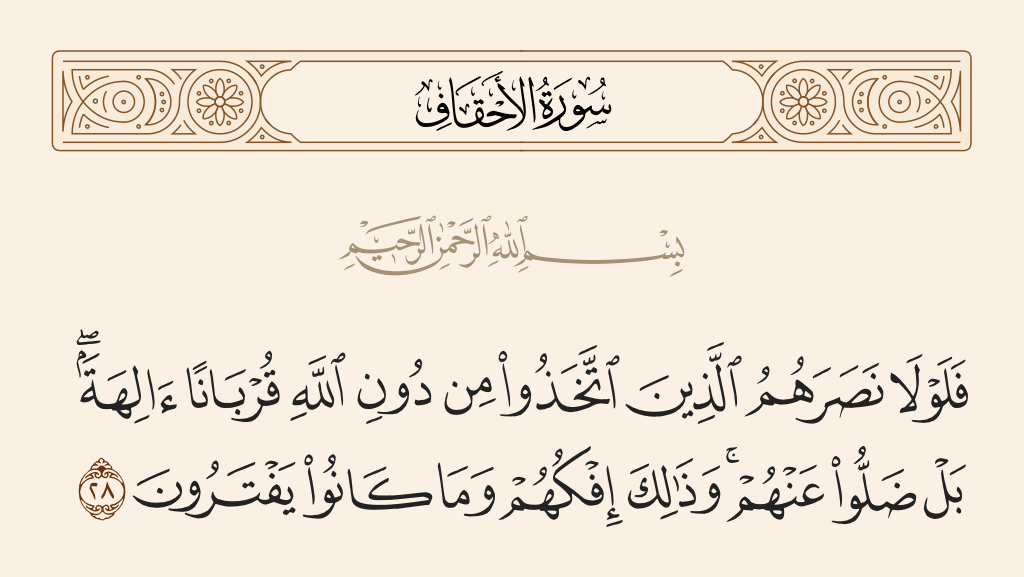 سُورَةُ الأَحْقَافِ
بِسْمِ ٱللَّهِ ٱلرَّحْمَٰنِ ٱلرَّحِيمِ
فَلَوْلَا نَصَرَهُمُ ٱلَّذِينَ ٱتَّخَذُوا۟ مِن دُونِ ٱللَّهِ قُرْبَانًا ءَالِهَةًۢ ۖ
بَلْ ضَلُّوا۟ عَنْهُمْ ۚ وَذَٰلِكَ إِفْكُهُمْ وَمَا كَانُوا۟ يَفْتَرُونَ ٢٨